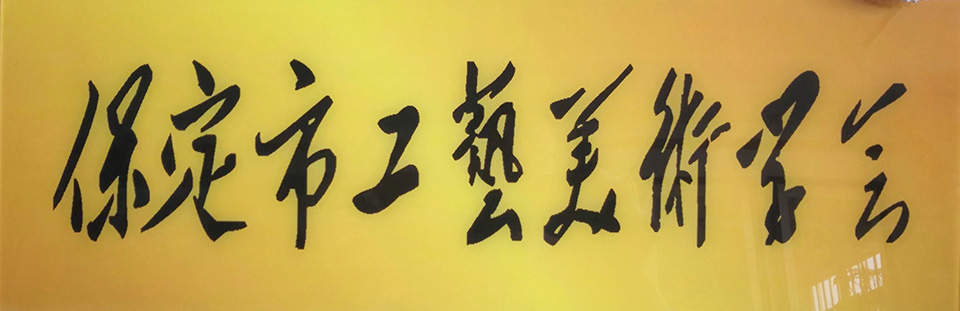 保定市工藝美術学会